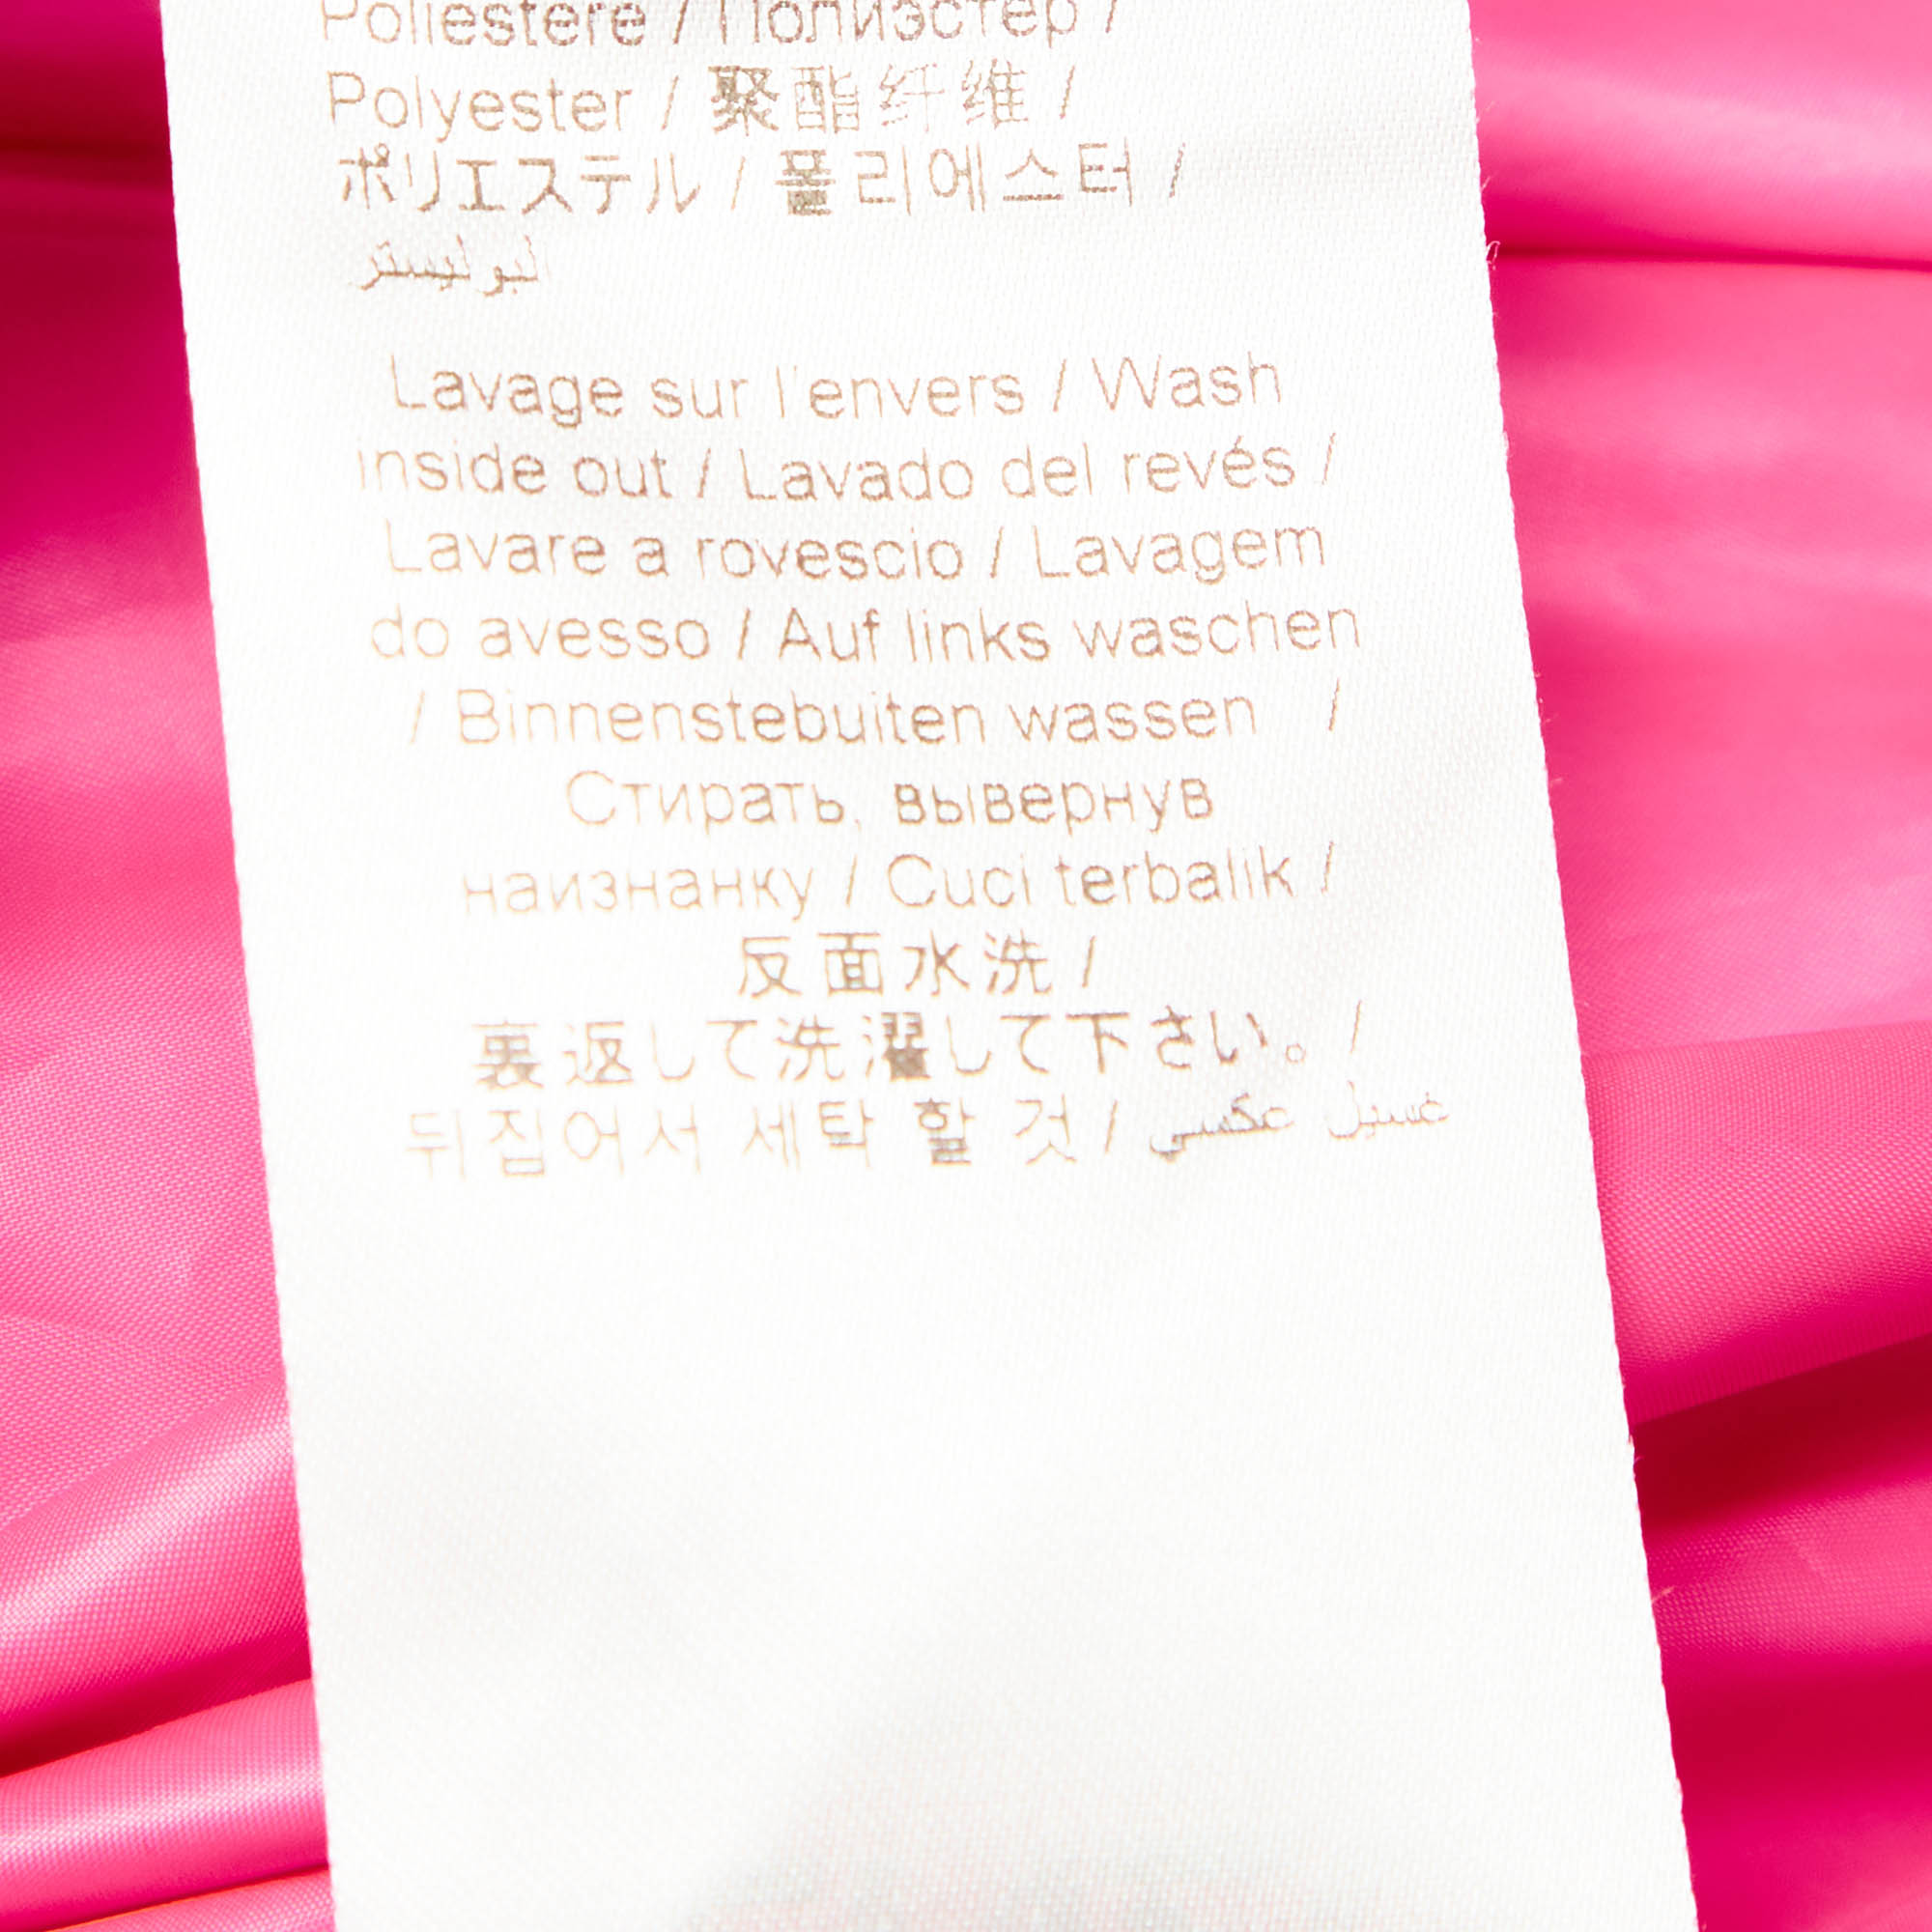 Poliestere / Полиэстер /
Polyester / 聚酯纤维 /
ポリエステル / 폴리에스터 /
البوليستر
Lavage sur l'envers / Wash
inside out / Lavado del revés /
Lavare a rovescio / Lavagem
do avesso / Auf links waschen
/ Binnenstebuiten wassen /
Стирать, вывернув
наизнанку / Cuci terbalik /
反面水洗 /
裏返して洗濯して下さい。 /
뒤집어서 세탁 할 것 / غسيل عكسي